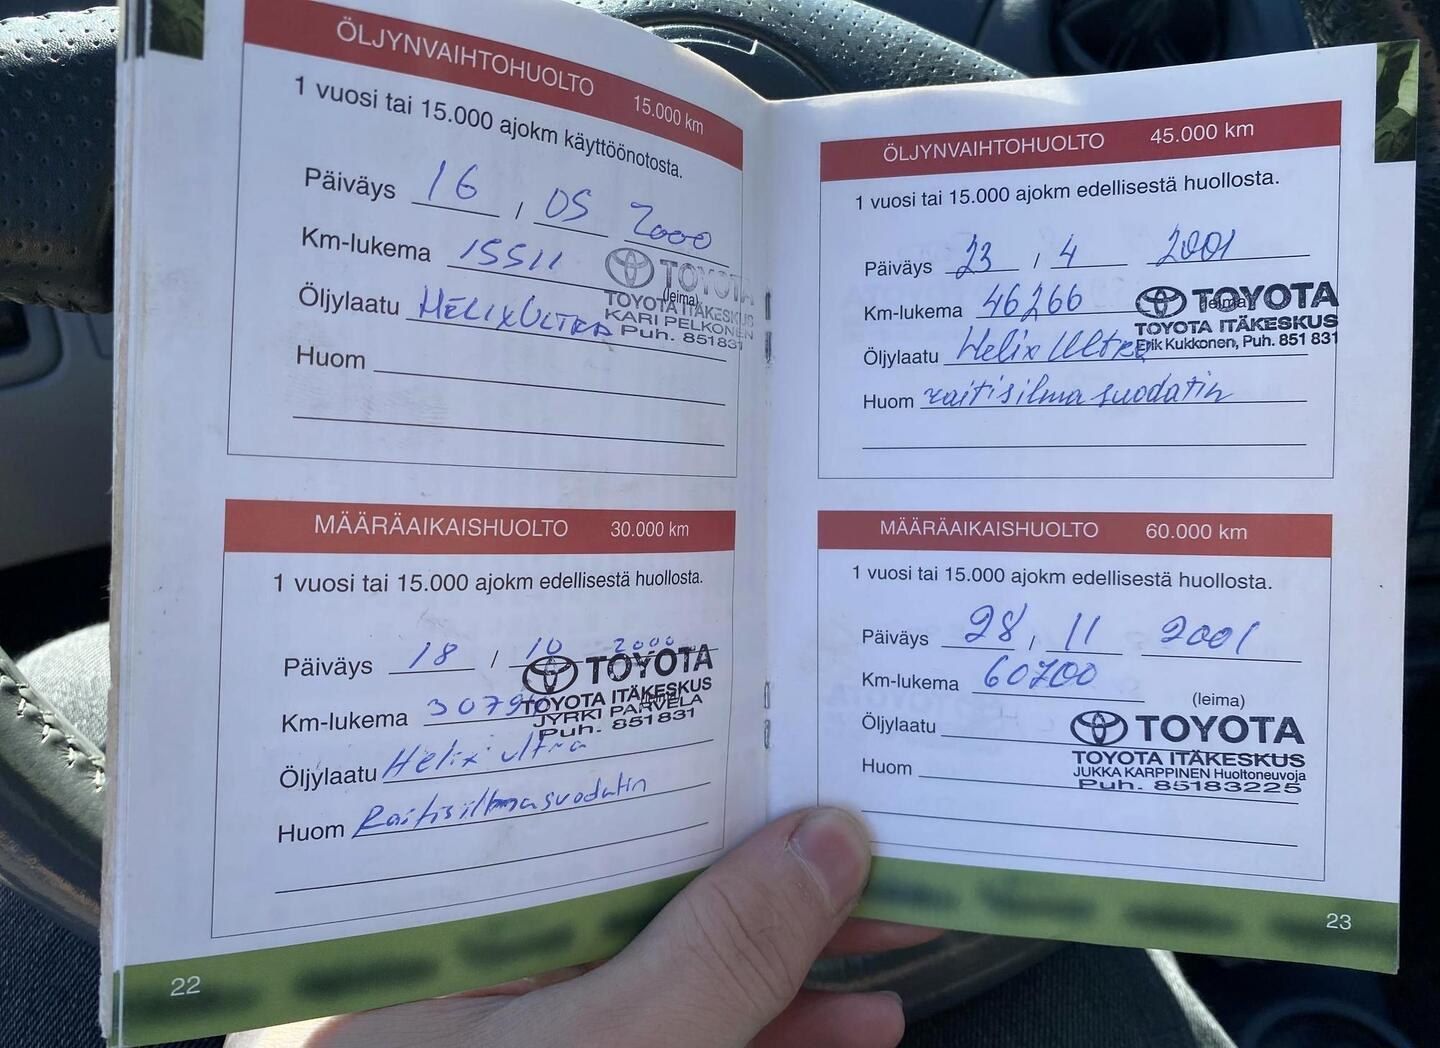 ÖLJYNVAIHTOHUOLTO 15.000 km
1 vuosi tai 15.000 ajokm käyttöönotosta.
Päiväys 16 / 05 2000
Km-lukema 15511
TOYOTA
(leima)
TOYOTA ITÄKESKUS
KARI PELKONEN
Puh. 851831
Öljylaatu HELIX ULTRA
Huom
MÄÄRÄAIKAISHUOLTO 30.000 km
1 vuosi tai 15.000 ajokm edellisestä huollosta.
Päiväys 18 / 10 2000
Km-lukema 3079
TOYOTA
TOYOTA ITÄKESKUS
JYRKI PARVELA
Puh. 851831
Öljylaatu Helix ultra
Huom Raitisilmasuodatin
22
ÖLJYNVAIHTOHUOLTO 45.000 km
1 vuosi tai 15.000 ajokm edellisestä huollosta.
Päiväys 23 / 4 2001
Km-lukema 46266
TOYOTA
(leima)
TOYOTA ITÄKESKUS
Erik Kukkonen, Puh. 851 831
Öljylaatu Helix Ultra
Huom raitisilma suodatin
MÄÄRÄAIKAISHUOLTO 60.000 km
1 vuosi tai 15.000 ajokm edellisestä huollosta.
Päiväys 28 / 11 2001
Km-lukema 60700
(leima)
Öljylaatu
TOYOTA
TOYOTA ITÄKESKUS
JUKKA KARPPINEN Huoltoneuvoja
Puh. 85183225
Huom
23